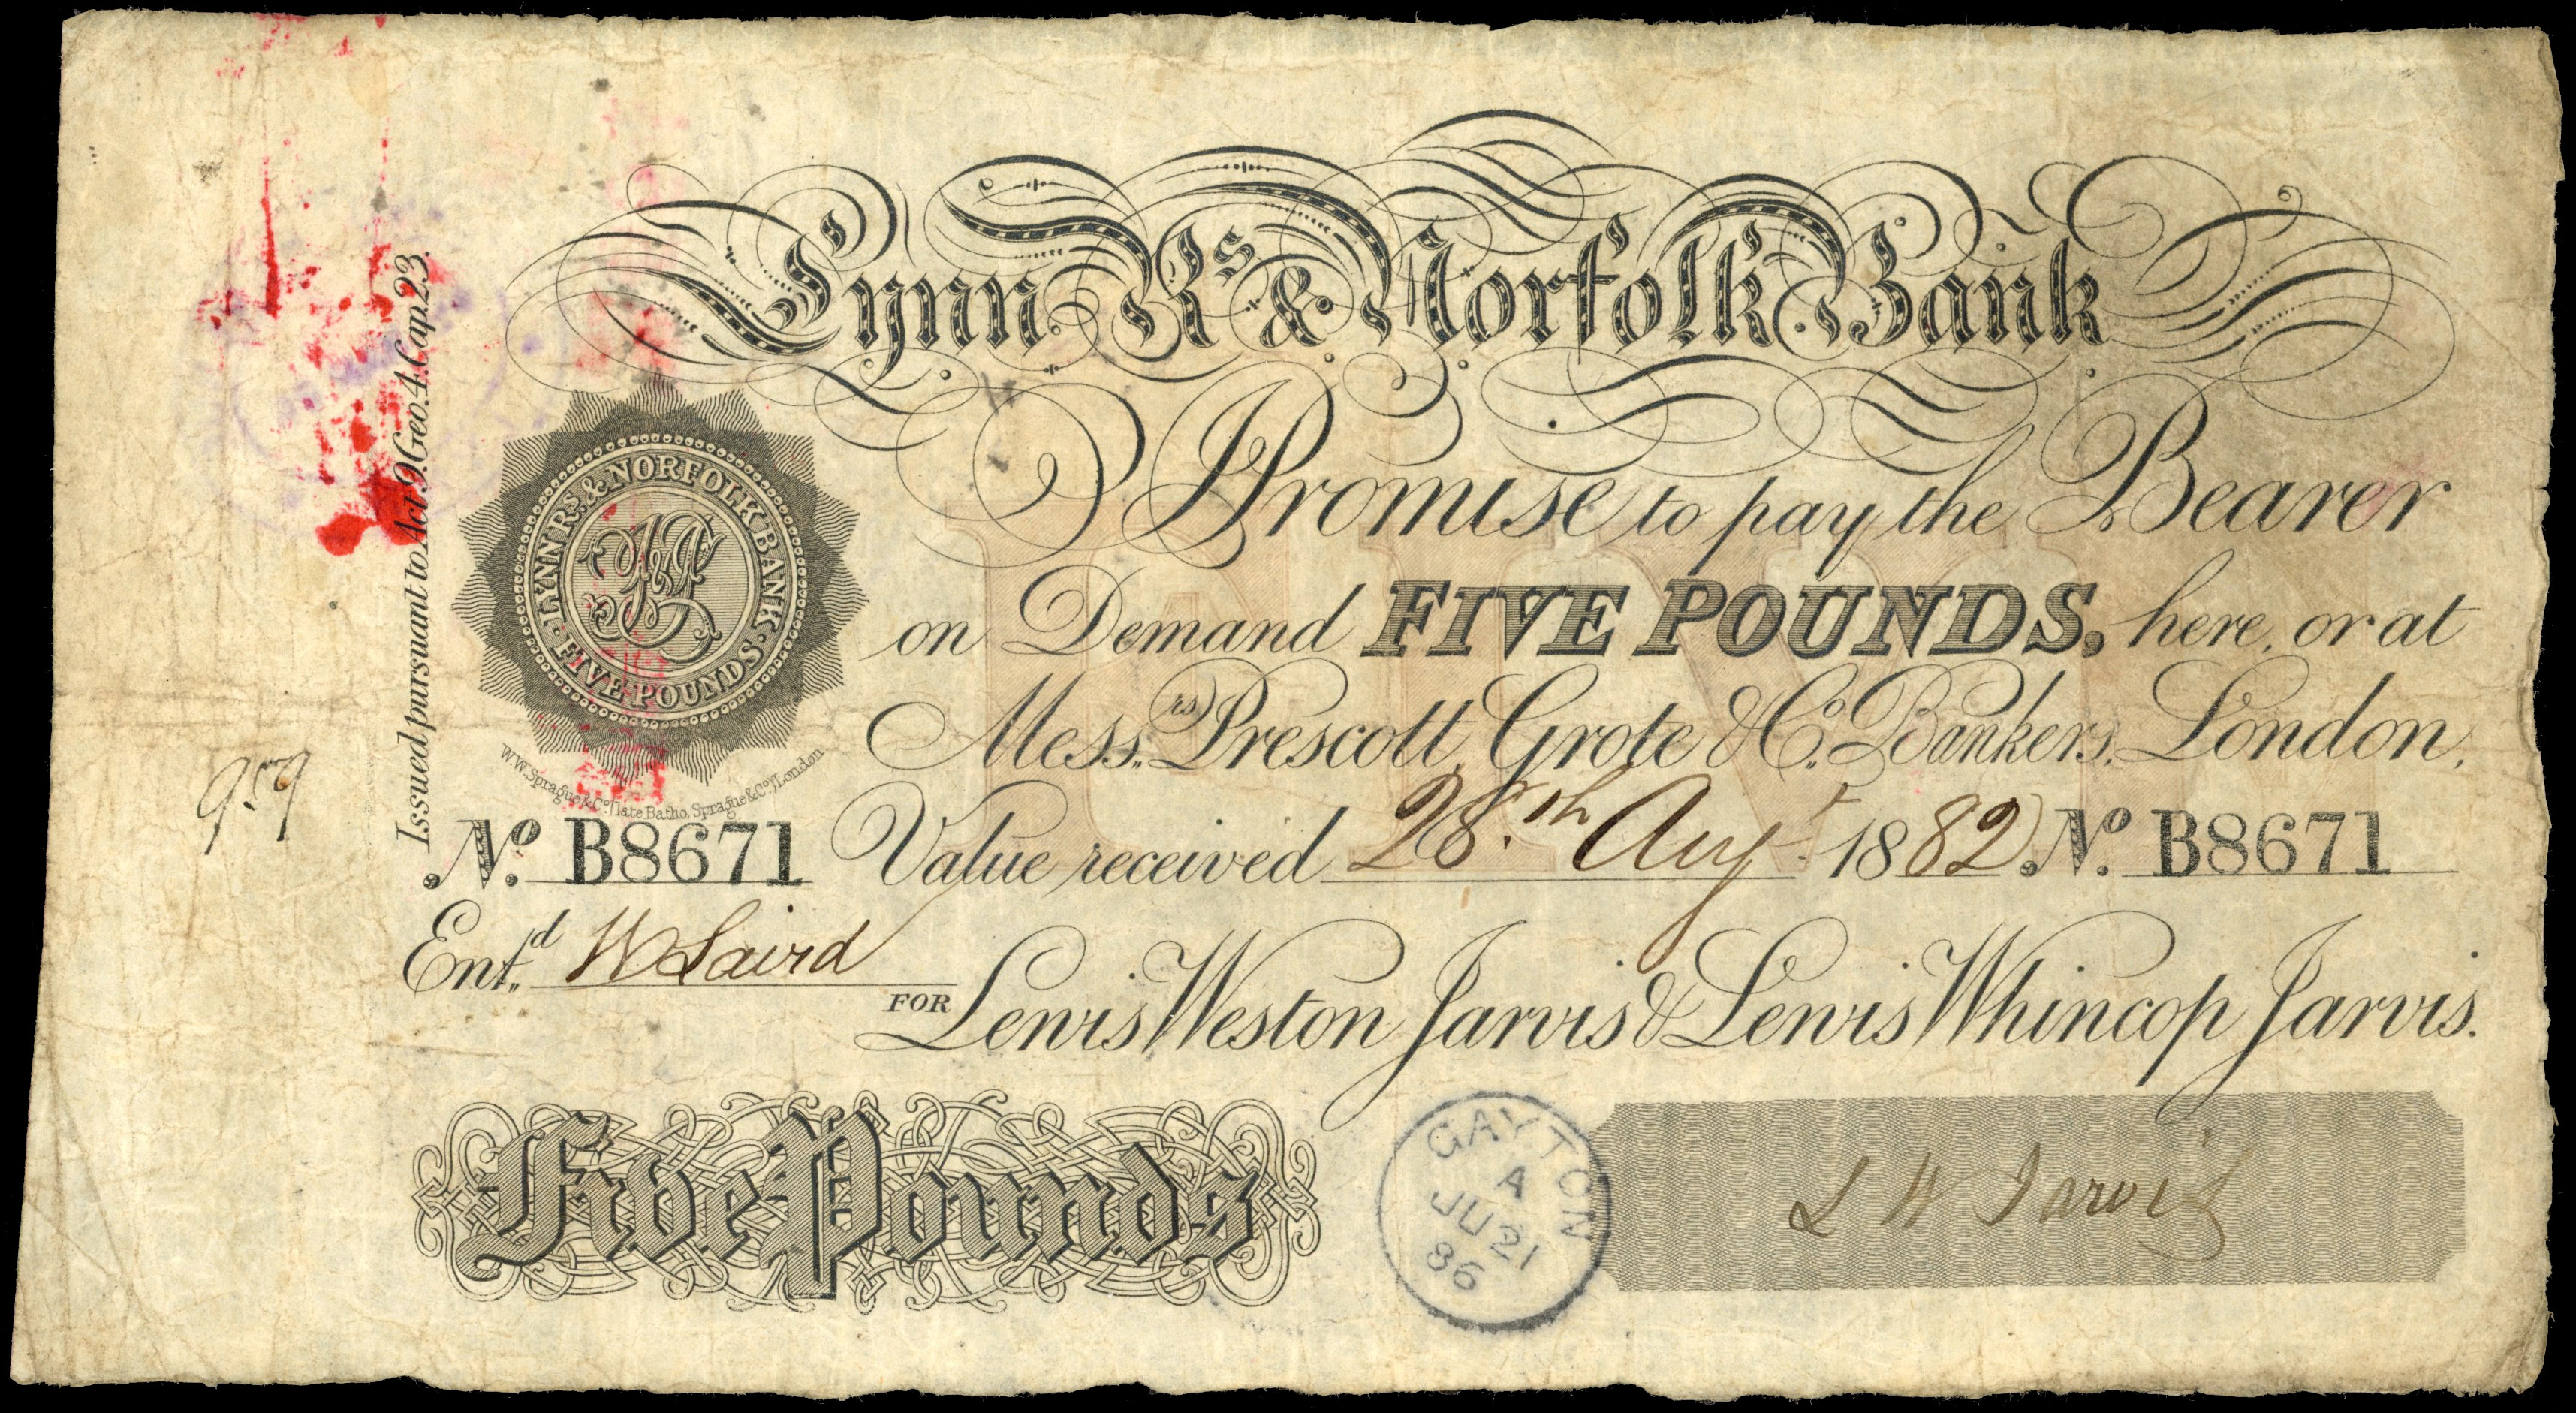 Lynn Rs & Norfolk Bank
I Promise to pay the Bearer
on Demand FIVE POUNDS, here, or at
Messrs Prescott, Grote & Co. Bankers, London,
Value received 28th Augt 1882 No. B8671
No. B8671
Entd. W Laird
FOR Lewis Weston Jarvis & Lewis Whincop Jarvis.
Five Pounds
L W Jarvis
GAYTON
A
JU 21
86
Issued pursuant to Act 9. Geo. 4. Cap. 23.
LYNN RS. & NORFOLK BANK
FIVE POUNDS
W.W. Sprague & Co. (late Batho, Sprague & Co.) London
FIVE